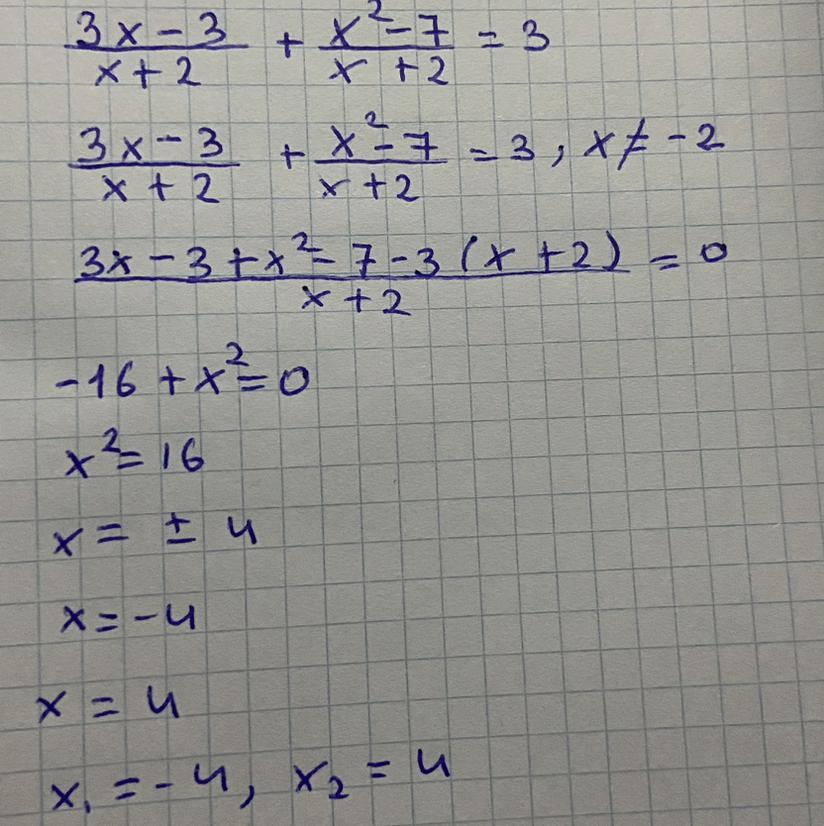 (3x-3)/(x+2) + (x²-7)/(x+2) = 3
(3x-3)/(x+2) + (x²-7)/(x+2) = 3, x ≠ -2
(3x-3+x²-7-3(x+2))/(x+2) = 0
-16+x²=0
x²=16
x= ± 4
x=-4
x = 4
x₁ =-4, x₂ = 4